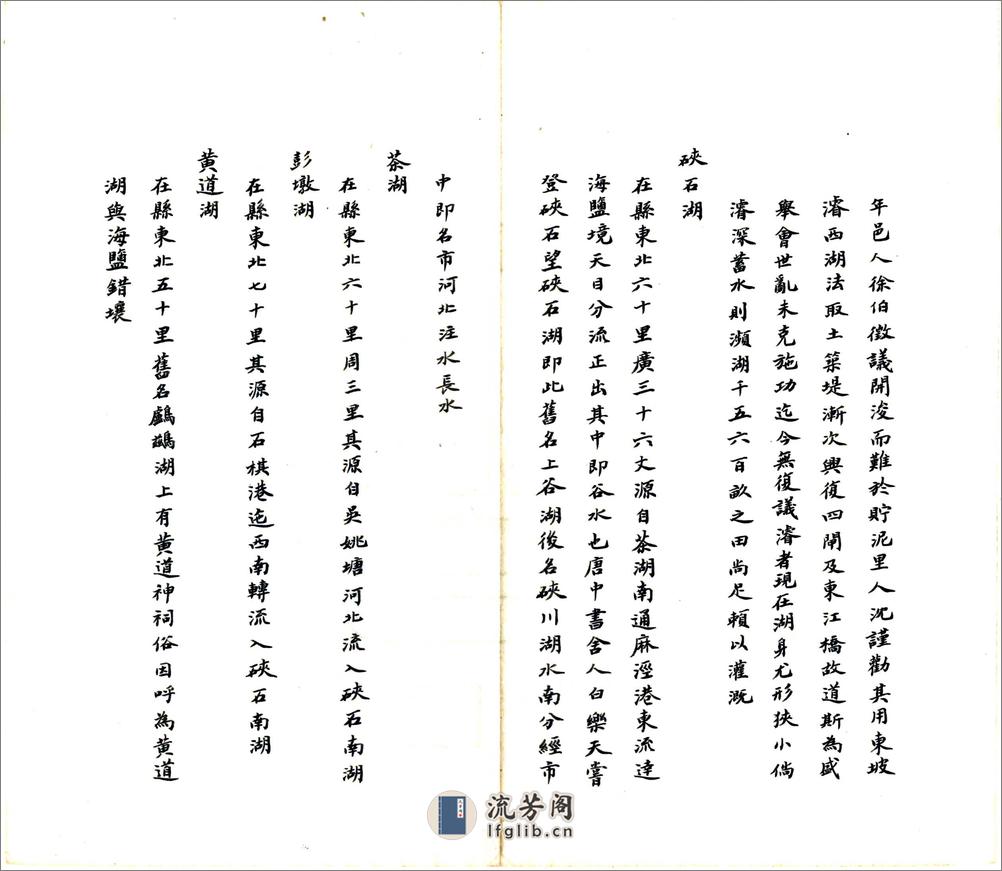 年邑人徐伯徵議開浚而難於貯泥里人沈謹勸其用東坡
濬西湖法取土築堤漸次興復四閘及東江橋故道斯為盛
舉會世亂未克施功迄今無復議濬者現在湖身尤形狹小倘
濬深蓄水則瀕湖千五六百畝之田尚足賴以灌溉
硤石湖
在縣東北六十里廣三十六丈源自茶湖南通麻涇港東流達
海鹽境天目分流正出其中即谷水也唐中書舍人白樂天嘗
登硤石望硤石湖即此舊名上谷湖後名硤川湖水南分經市
中即名市河北注水長水
茶湖
在縣東北六十里周三里其源自吳姚塘河北流入硤石南湖
彭墩湖
在縣東北七十里其源自石棋港迤西南轉流入硤石南湖
黃道湖
在縣東北五十里舊名鸕鷀湖上有黃道神祠俗因呼為黃道
湖與海鹽錯壤
流芳阁
lfglib.cn